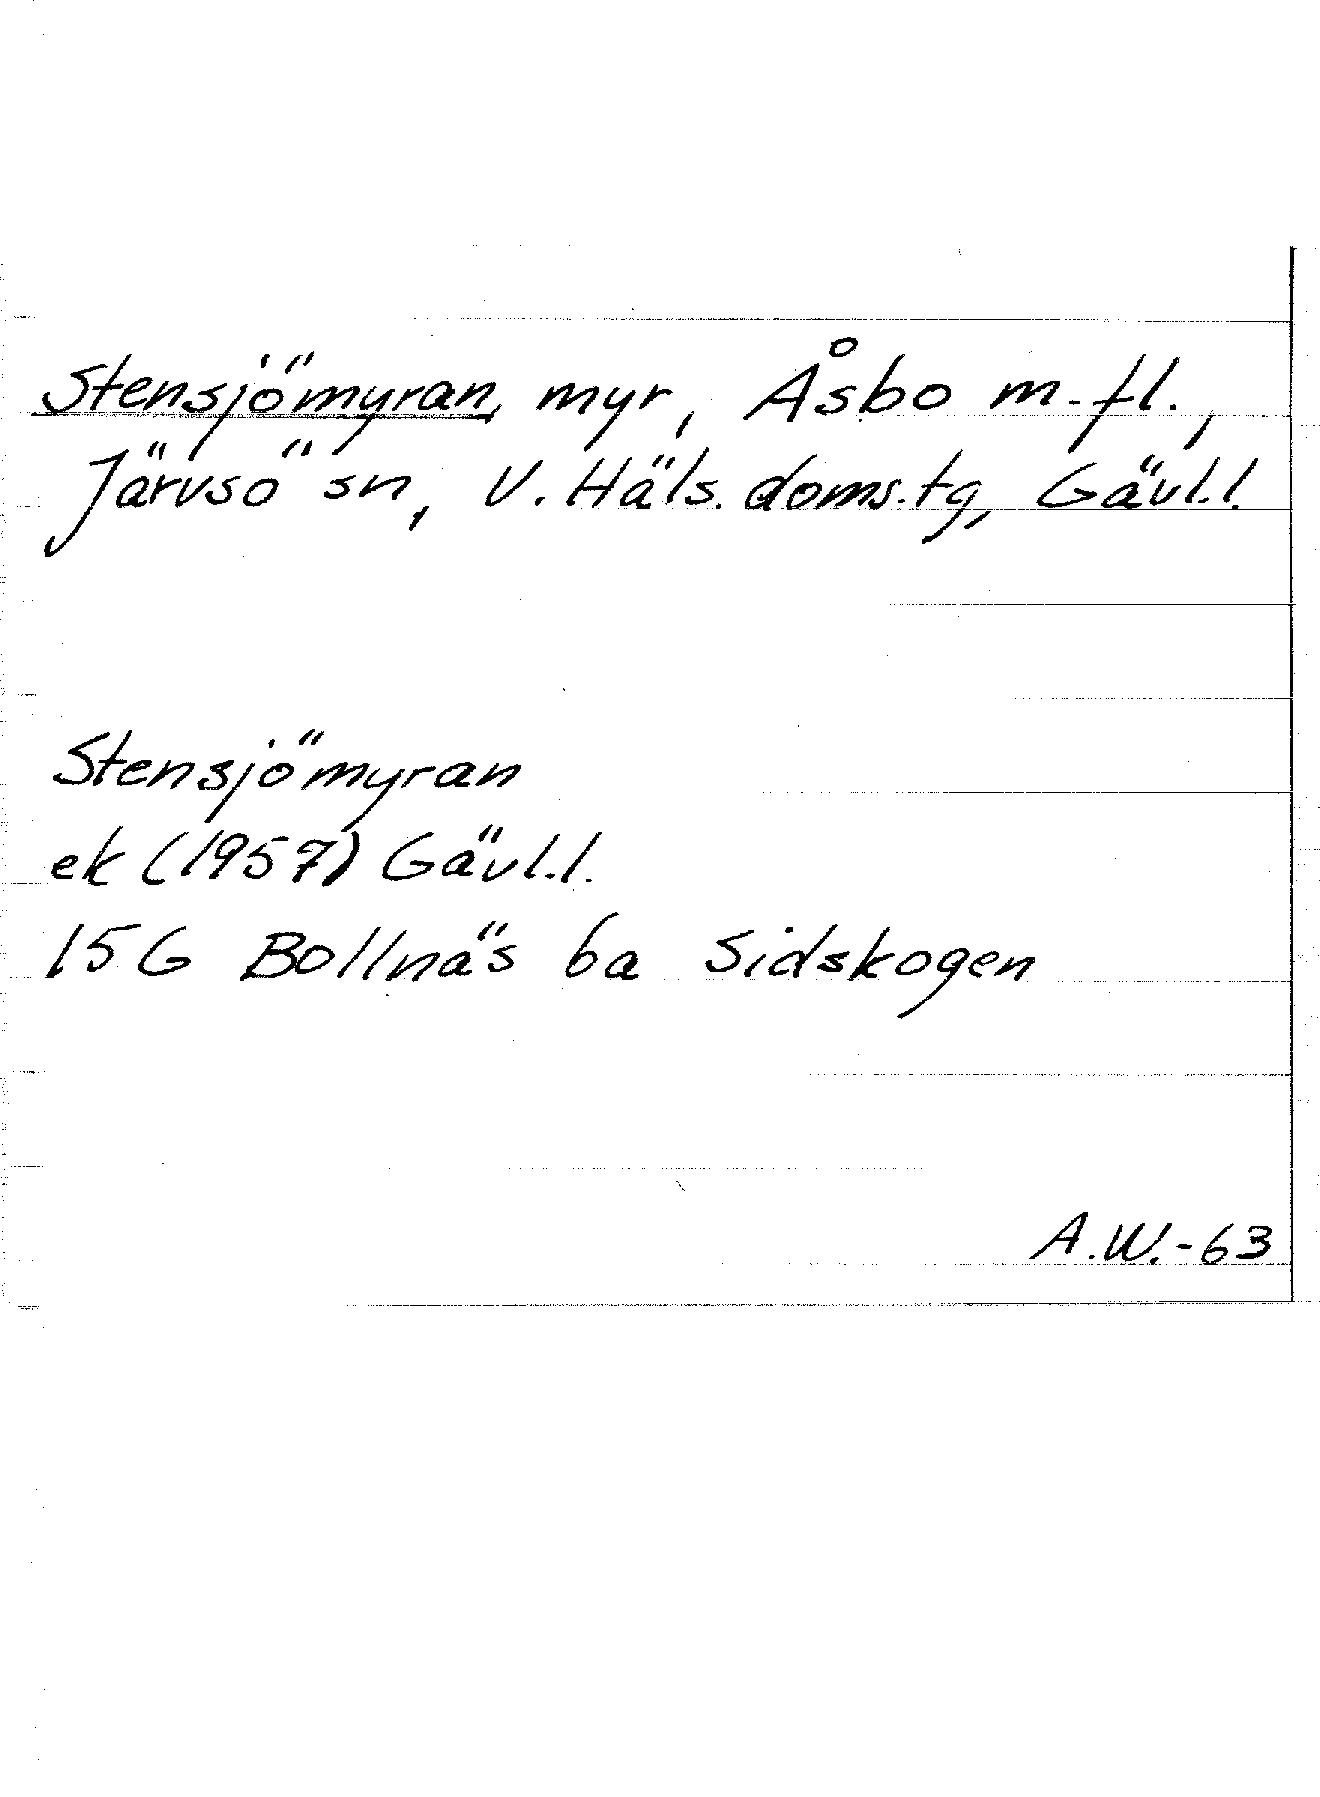 Stensjömyran, myr, Åsbo m.fl.,
Järvsö sn, V. Häls. doms.tg, Gävl.l.
Stensjömyran
ek (1957) Gävl.l.
15G Bollnäs 6a Sidskogen
A.W.-63